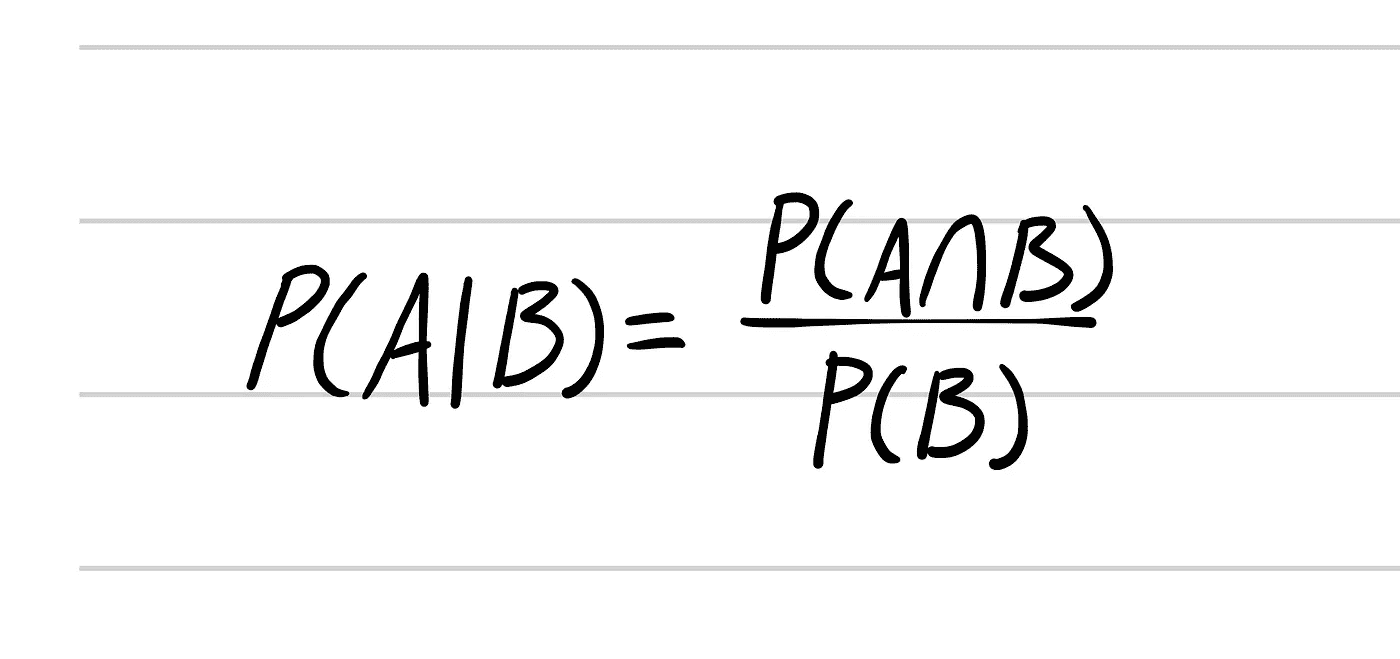 P(A|B) = P(A∩B)
P(B)